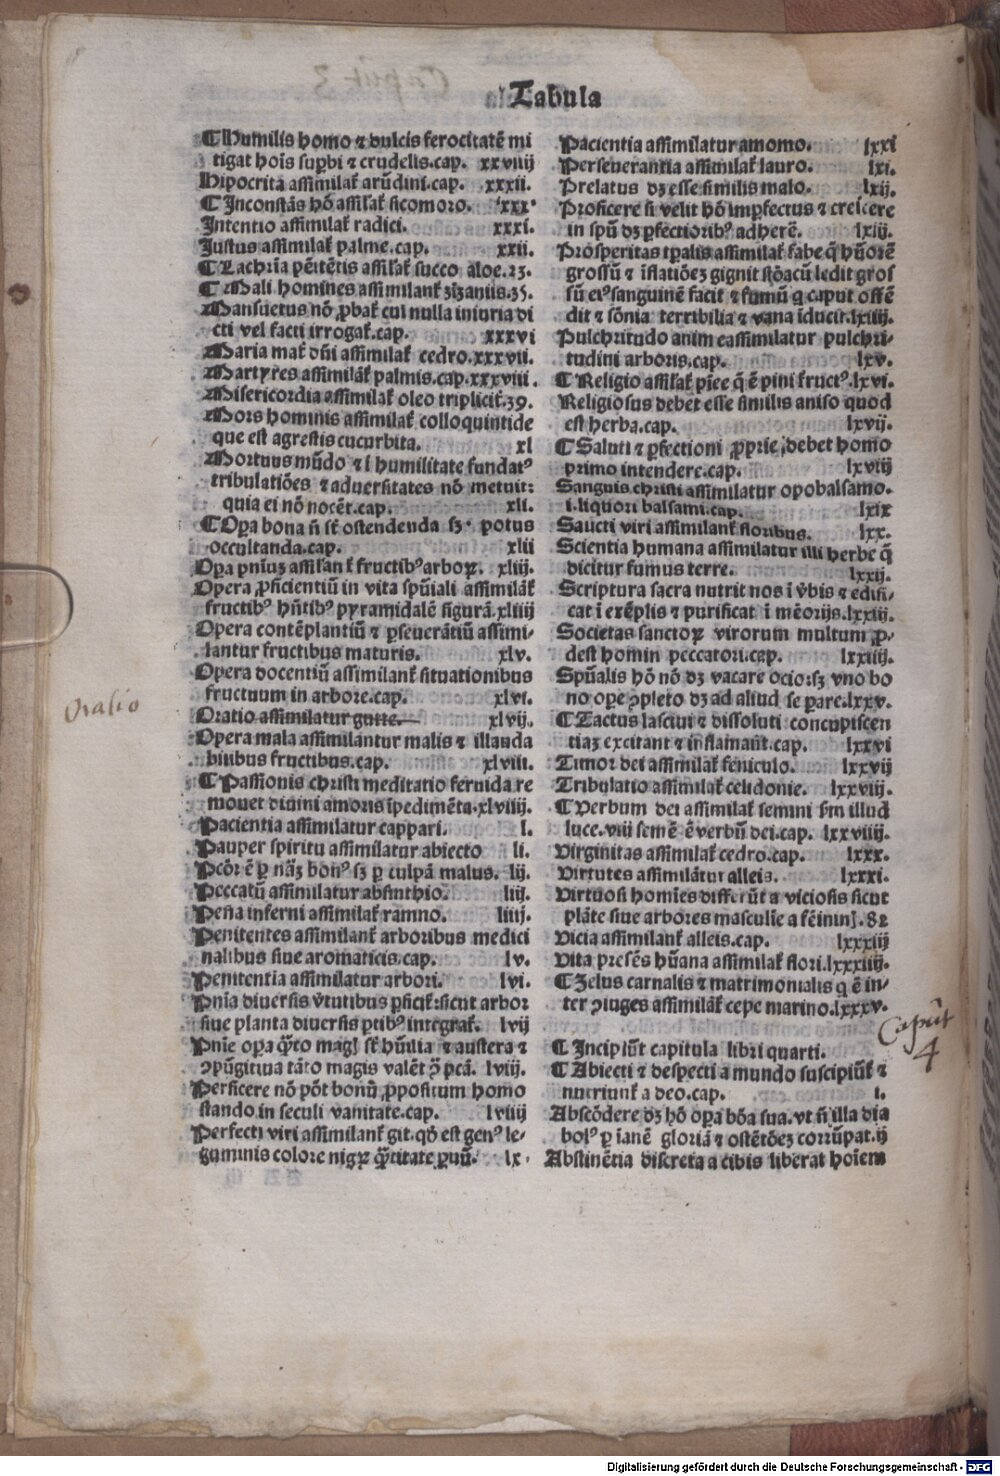 Tabula
¶ Humilis homo ⁊ dulcis ferocitatē mi
tigat hoīs suꝑbi ⁊ crudelis.cap. xxviiij
Hipocrita assimilaꞇ̃ arūdini.cap. xxxii.
¶ Incōstās hō assilaꞇ̃ sicomoro. xxx
Intentio assimilaꞇ̃ radici. xxxi.
Justus assimilaꞇ̃ palme.cap. xxii.
¶ Lachrīa pēitētis assilaꞇ̃ succo aloe.23.
¶ Mali homines assimilanꞇ̃ zizaniis.35.
Mansuetus nō ꝓbaꞇ̃ cui nulla iniuria di
cti vel facti irrogaꞇ̃.cap. xxxvi
Maria maꞇ̃ dñi assimilaꞇ̃ cedro.xxxvii.
Martyres assimilāꞇ̃ palmis.cap.xxxviii.
Misericordia assimilaꞇ̃ oleo triplicit̃.39.
Mors hominis assimilaꞇ̃ colloquintide
que est agrestis cucurbita. xl
Mortuus mūdo ⁊ ī humilitate fundatꝰ
tribulatiōes ⁊ aduersitates nō metuit:
quia ei nō nocēt.cap. xli.
¶ Oꝑa bona ñ sꞇ̃ ostendenda sꝫ potus
occultanda.cap. xlii
Oꝑa pniūꝫ assilanꞇ̃ fructibꝰ arboꝝ. xliij.
Opera ꝓficientiū in vita spūiali assimilāꞇ̃
fructibꝰ hñtibꝰ pyramidalē figurā.xliiij
Opera contēplantiū ⁊ ꝑseuerātiū assimi-
lantur fructibus maturis. xlv.
Opera docentiū assimilanꞇ̃ situationibus
fructuum in arbore.cap. xlvi.
Oratio assimilatur gutte. xlvij.
Opera mala assimilantur malis ⁊ illauda
bilibus fructibus.cap. xlviii.
¶ Passionis christi meditatio feruida re
mouet diuini amoris īpedimēta.xlviiij.
Pacientia assimilatur cappari. l.
Pauper spiritu assimilatur abiecto li.
Pcōr ē ꝑ nāꝫ bonꝰ sꝫ ꝑ culpā malus. lij.
Peccatū assimilatur absinthio. liij.
Pena inferni assimilaꞇ̃ ramno. liiij.
Penitentes assimilanꞇ̃ arboribus medici
nalibus siue aromaticis.cap. lv.
Penitentia assimilatur arbori. lvi.
Pnīa diuersis v̄tutibus ꝑficiꞇ̃:sicut arbor
siue planta diuersis ꝑtibꝰ integraꞇ̃. lvij
Pnīe oꝑa q̄ꝫto magꝭ sꞇ̃ hūilia ⁊ austera ⁊
ꝯpūgitiua tāto magis valēt ꝓ pcā. lviij.
Perficere nō pōt bonū ꝓpositum homo
stando in seculi vanitate.cap. lviiij
Perfecti viri assimilanꞇ̃ git.qd̄ est genꝰ le-
guminis colore nigꝝ q̄ꝫtitate ꝑuū. lx.
Pacientia assimilatur amomo. lxxi
Perseuerantia assimilaꞇ̃ lauro. lxi.
Prelatus dꝫ esse similis malo. lxij.
Proficere si velit hō imꝑfectus ⁊ crescere
in spū dꝫ ꝑfectioribꝰ adherē. lxiij.
Prosperitas tꝑalis assimilaꞇ̃ fabe q̄ hūorē
grossū ⁊ īflatiōeꝫ gignit stōacū ledit gros
sū eiꝰ sanguinē facit ⁊ fumū q caput offē
dit ⁊ sōnia terribilia ⁊ vana īducit.lxiiij.
Pulchritudo anim eassimilatur pulchri-
tudini arboris.cap. lxv.
¶ Religio assilaꞇ̃ pīee q̄ ē pini fructꝰ.lxvi.
Religiosus debet esse similis aniso quod
est herba.cap. lxvij.
¶ Saluti ⁊ ꝑfectioni ꝓprie debet homo
primo intendere.cap. lxviij
Sanguis christi assimilatur opobalsamo.
i.liquori balsami.cap. lxix
Sancti viri assimilanꞇ̃ floribus. lxx.
Scientia humana assimilatur illi herbe q̄
dicitur fumus terre. lxxij.
Scriptura sacra nutrit nos ī v̄bis ⁊ edifi-
cat ī exēplis ⁊ purificat ī mēoriis.lxxiij.
Societas sanctoꝝ virorum multum ꝓ-
dest homin peccatori.cap. lxxiiij.
Spūalis hō nō dꝫ vacare ocio:sꝫ vno bo
no oꝑe ꝯpleto dꝫ ad aliud se ꝑare.lxxv.
¶ Tactus lasciui ⁊ dissoluti concupiscen
tiaꝫ excitant ⁊ inflamant̃.cap. lxxvi
Timor dei assimilaꞇ̃ feniculo. lxxvij
Tribulatio assimilaꞇ̃ celidonie. lxxviij.
¶ Verbum dei assimilaꞇ̃ semini sm̄ illud
luce.viij semē ē verbū dei.cap. lxxviiij.
Virginitas assimilaꞇ̃ cedro.cap. lxxx.
Virtutes assimilātur alleis. lxxxi.
Virtuosi homīes differūt a viciosis sicut
plāte siue arbores masculīe a fēininꝭ.82
Vicia assimilanꞇ̃ alleis.cap. lxxxiij
Vita presēs hūana assimilaꞇ̃ flori.lxxxiiij.
¶ Zelus carnalis ⁊ matrimonialis q ē in-
ter ꝯiuges assimilāꞇ̃ cepe marino.lxxxv.
¶ Incipiūt capitula libri quarti.
¶ Abiecti ⁊ despecti a mundo suscipiūꞇ̃ ⁊
nutriunꞇ̃ a deo.cap. i.
Abscōdere dꝫ hō oꝑa bōa sua.vt ñ illa dia
bolꝰ ꝑ īanē gloriā ⁊ ostētōeꝫ corrūpat.ij
Abstinētia discreta a cibis liberat hoīem
Oratio
Caput 4
Caput 3
Digitalisierung gefördert durch die Deutsche Forschungsgemeinschaft - DFG